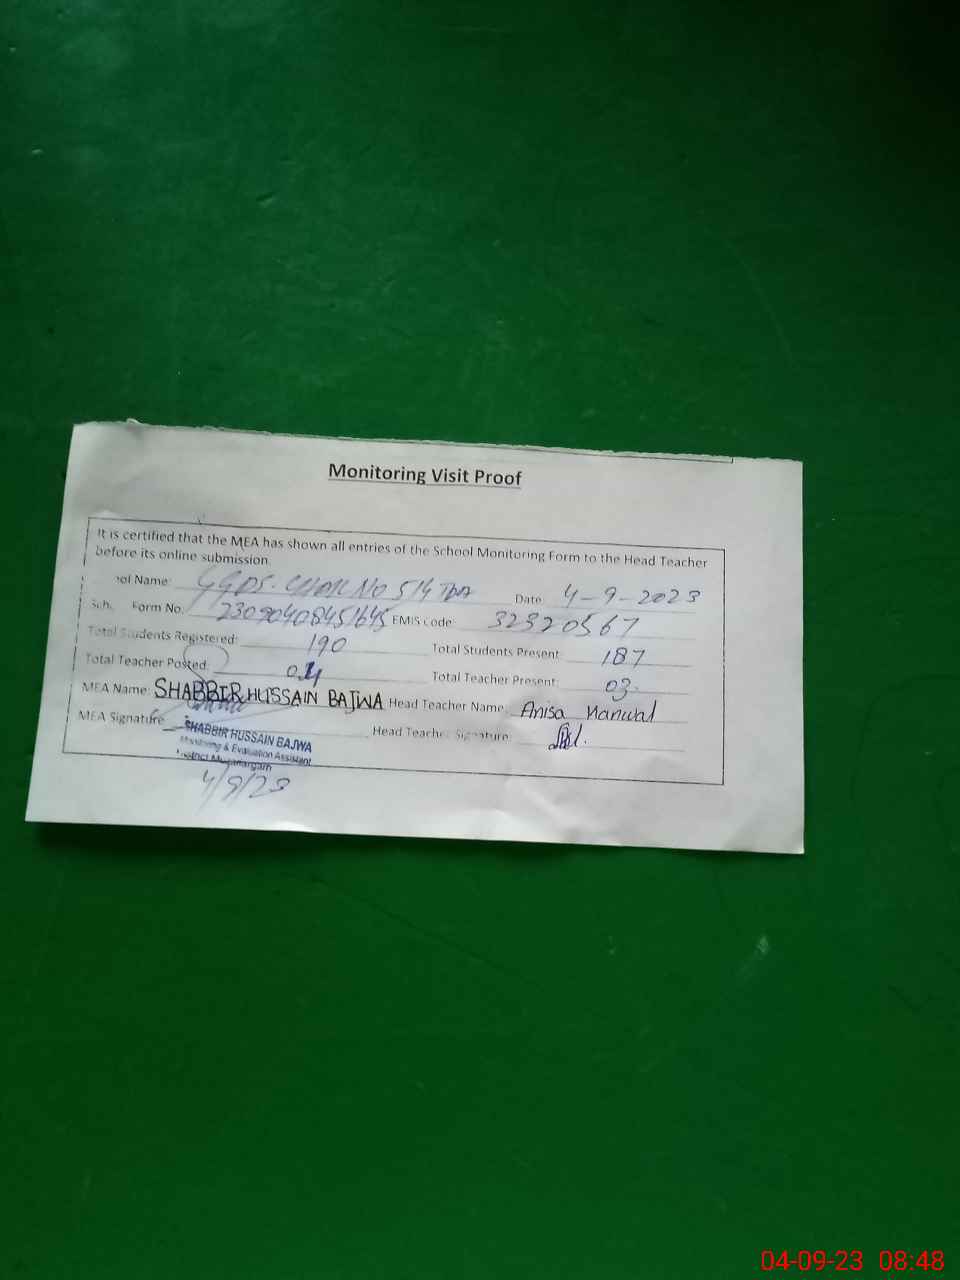 Monitoring Visit Proof
It is certified that the MEA has shown all entries of the School Monitoring Form to the Head Teacher
before its online submission.
ool Name: CHAK NO 514 TDA Date: 4-9-2023
Sch. Form No. 23090408451645 EMIS Code: 32320567
Total Students Registered: 190 Total Students Present: 187
Total Teacher Posted: Total Teacher Present: 03.
MEA Name: SHABBIR HUSSAIN BAJWA Head Teacher Name: Anisa Kanwal
MEA Signature Head Teacher Signature:
SHABBIR HUSSAIN BAJWA
Monitoring & Evaluation Assistant
District Muzaffargarh
4/9/23
04-09-23 08:48